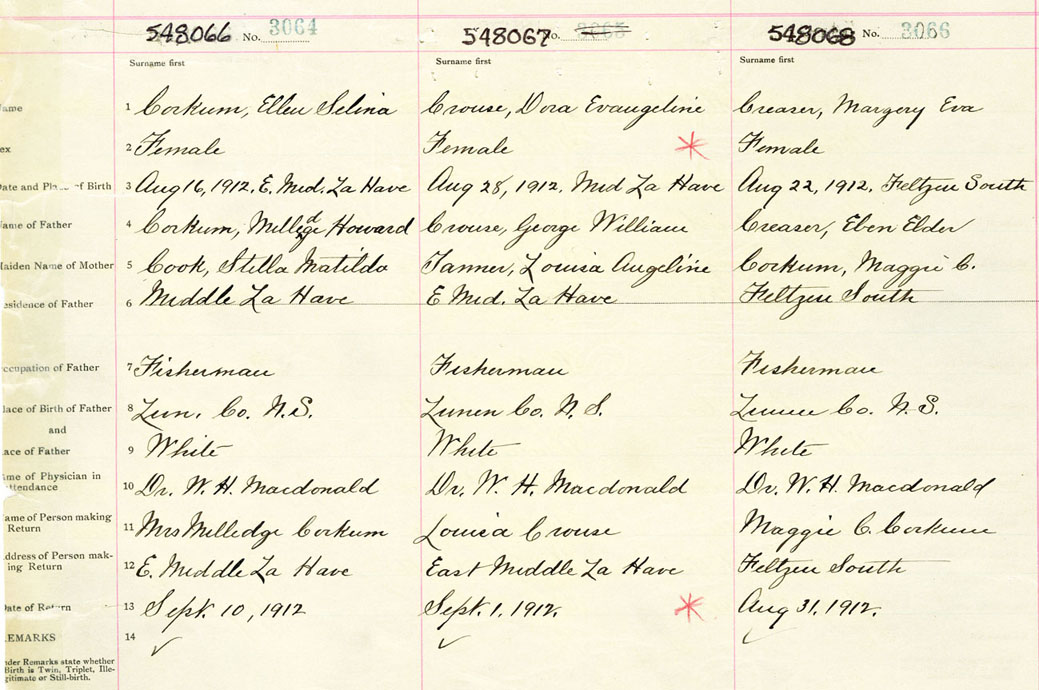 548066 No. 3064 548067 No. 3065 548068 No. 3066
Surname first Surname first Surname first
ame 1 Corkum, Ellen Selina Crouse, Dora Evangeline Creaser, Margery Eva
ex 2 Female Female Female
ate and Place of Birth 3 Aug 16, 1912, E. Mid. La Have Aug 28, 1912, Mid La Have Aug 22, 1912, Feltzen South
ame of Father 4 Corkum, Milledge Howard Crouse, George William Creaser, Eben Elder
aiden Name of Mother 5 Cook, Stella Matilda Tanner, Louisa Angeline Corkum, Maggie C.
esidence of Father 6 Middle La Have E Mid. La Have Feltzen South
ccupation of Father 7 Fisherman Fisherman Fisherman
lace of Birth of Father 8 Lun. Co. N.S. Lunen Co. N.S. Lunen Co. N.S.
and
ace of Father 9 White White White
me of Physician in
ttendance 10 Dr. W. H. Macdonald Dr. W. H. Macdonald Dr. W. H. Macdonald
ame of Person making
Return 11 Mrs Milledge Corkum Louisa Crouse Maggie C. Corkum
ddress of Person mak-
ing Return 12 E. Middle La Have East Middle La Have Feltzen South
ate of Return 13 Sept. 10, 1912 Sept. 1, 1912. Aug 31, 1912.
EMARKS 14
nder Remarks state whether
Birth is Twin, Triplet, Ille-
gitimate or Still-birth.